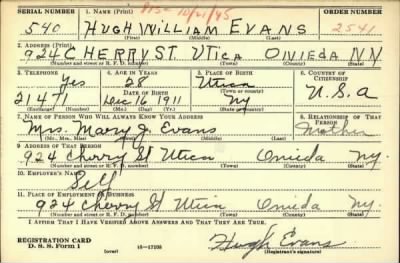 SERIAL NUMBER 1. NAME (Print) ORDER NUMBER
540 HUGH WILLIAM EVANS 2541
(First) (Middle) (Last)
2. ADDRESS (Print)
924 CHERRY ST. UTICA ONIEDA NY
(Number and street or R. F. D. number) (Town) (County) (State)
3. TELEPHONE 4. AGE IN YEARS 5. PLACE OF BIRTH 6. COUNTRY OF CITIZENSHIP
Yes 28 Utica U.S.A
DATE OF BIRTH (Town or county)
21471 Dec 16 1911 NY
(Exchange) (Number) (Mo.) (Day) (Yr.) (State or country)
7. NAME OF PERSON WHO WILL ALWAYS KNOW YOUR ADDRESS 8. RELATIONSHIP OF THAT PERSON
Mrs. Mary J Evans Mother
(Mr., Mrs., Miss) (First) (Middle) (Last)
9. ADDRESS OF THAT PERSON
924 Cherry St Utica Onieda Ny.
(Number and street or R. F. D. number) (Town) (County) (State)
10. EMPLOYER'S NAME
Self
11. PLACE OF EMPLOYMENT OR BUSINESS
924 Cherry St Utica Onieda Ny.
(Number and street or R. F. D. number) (Town) (County) (State)
I AFFIRM THAT I HAVE VERIFIED ABOVE ANSWERS AND THAT THEY ARE TRUE.
REGISTRATION CARD
D. S. S. Form 1 (over) 16-17105 Hugh Evans
(Registrant's signature)